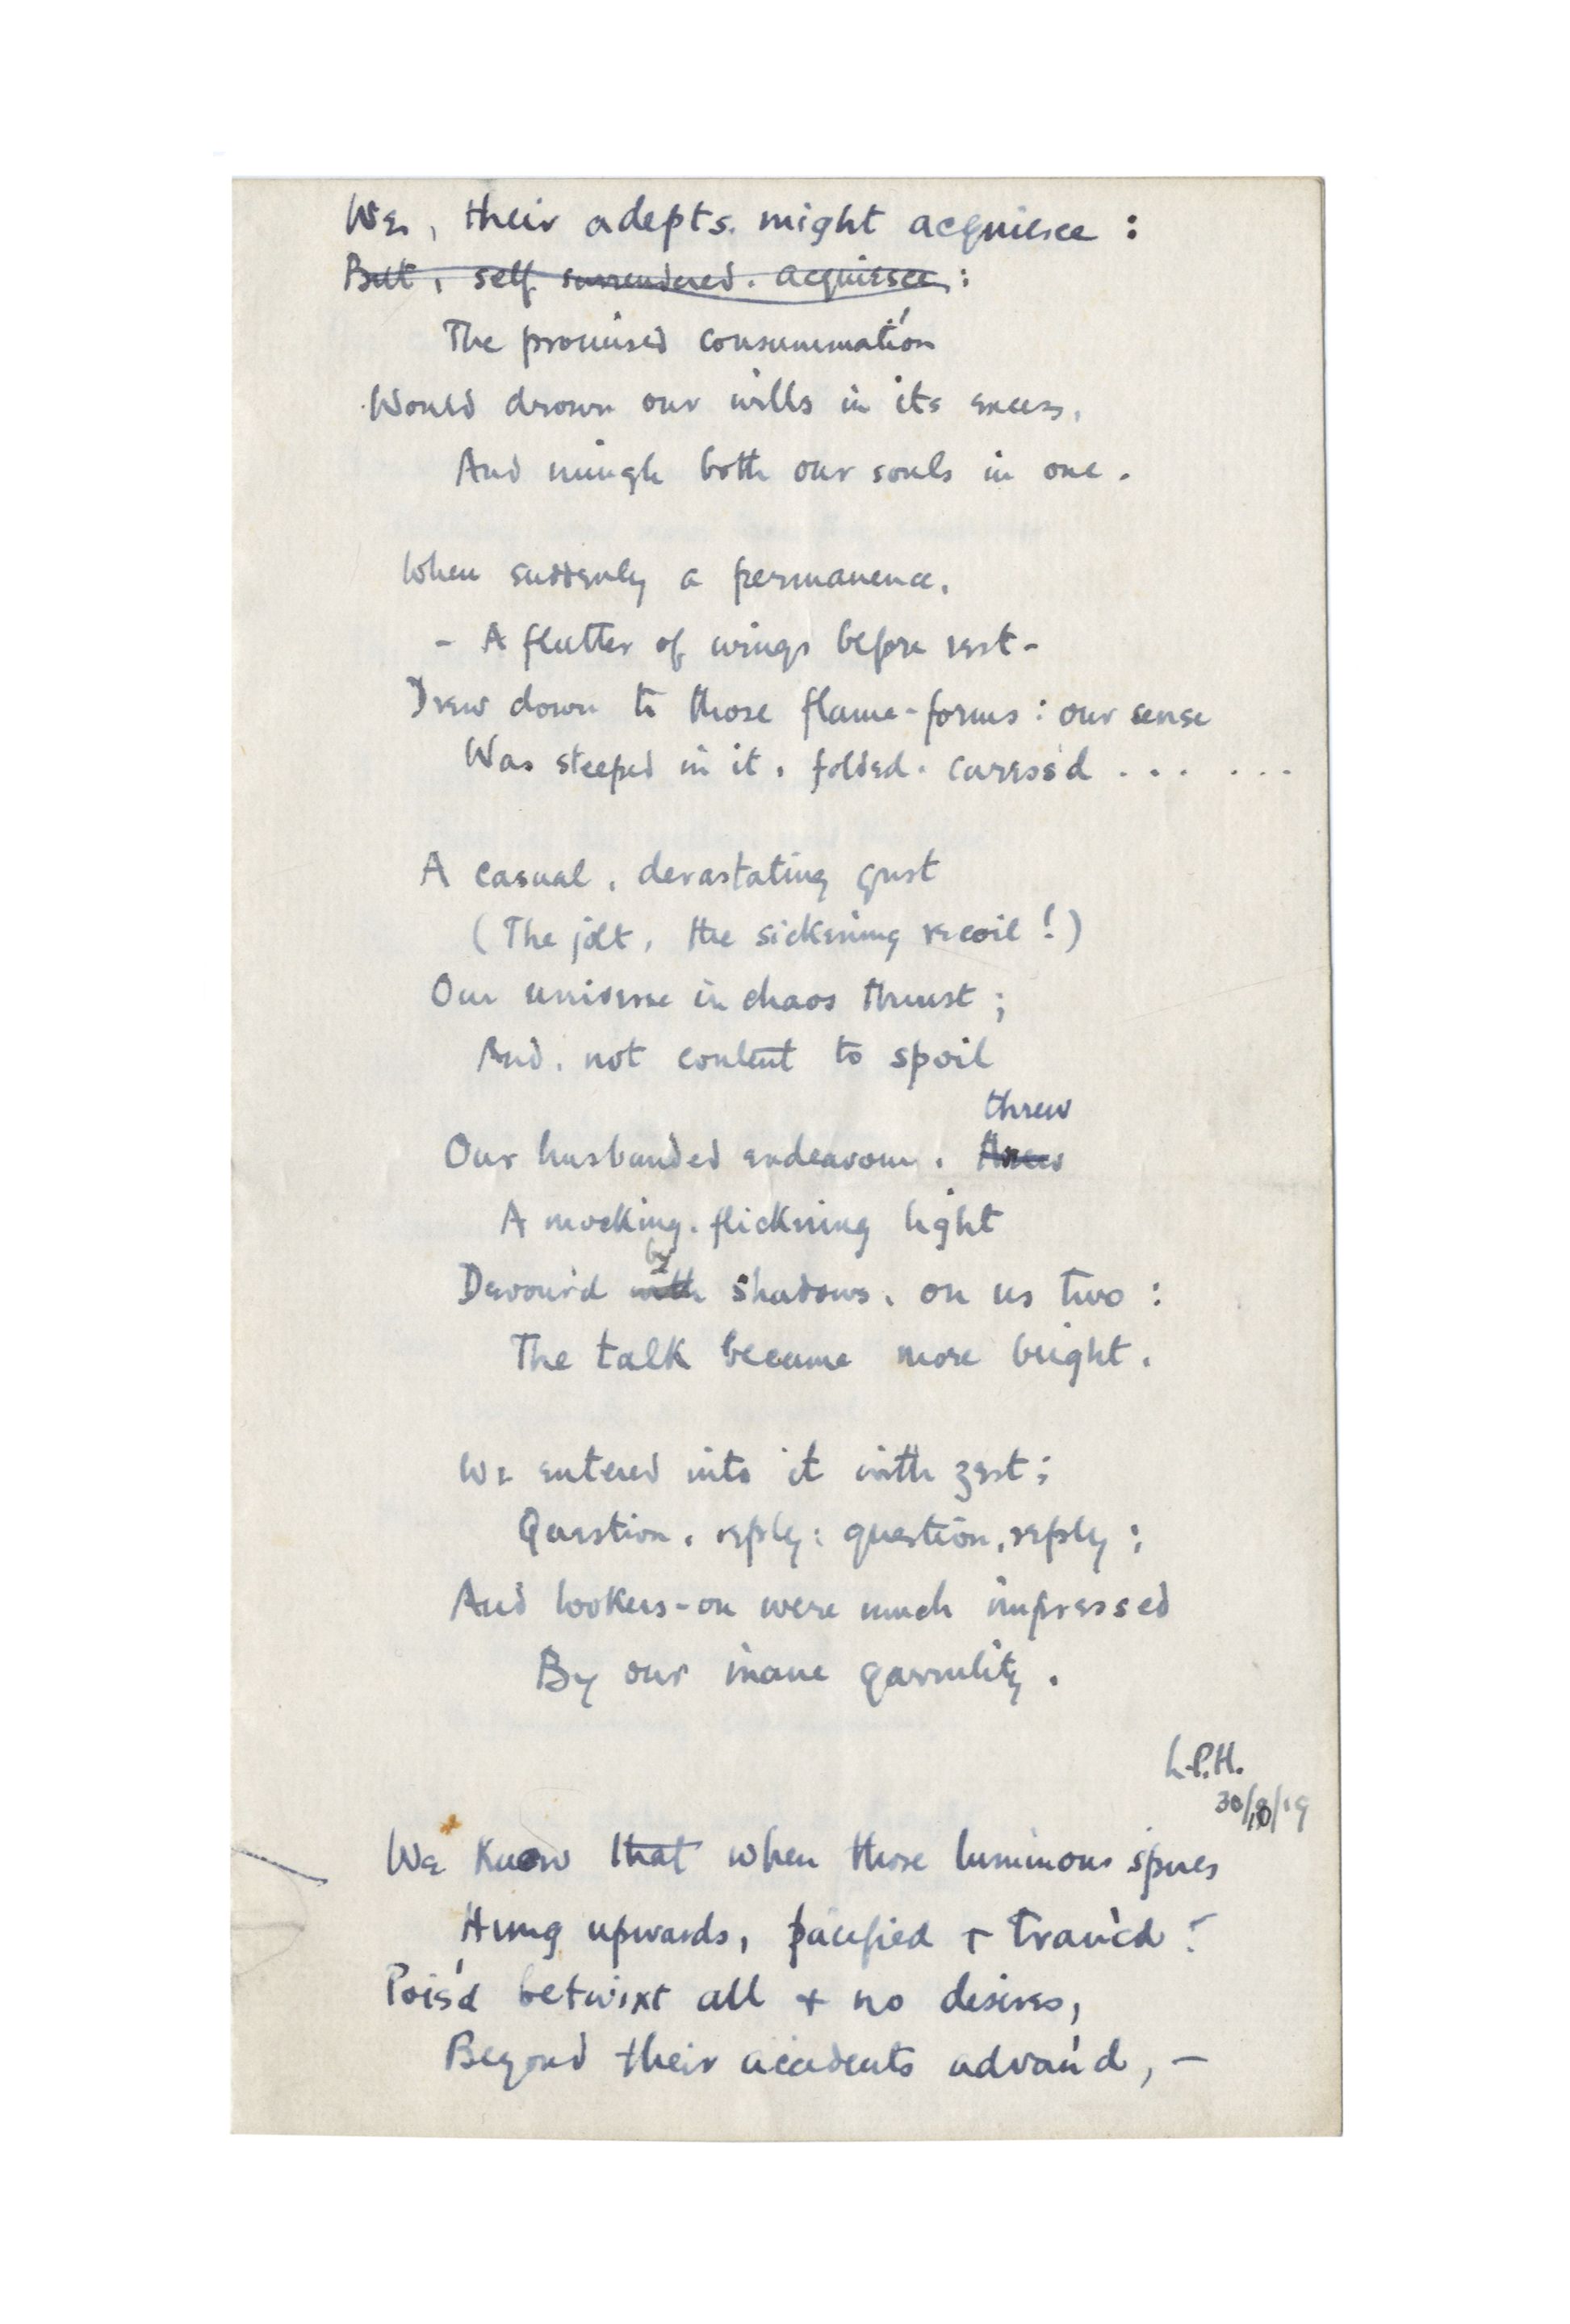 We, their adepts, might acquiesce :
But, self surrendered, acquiesce, :
The promised consummation
Would drown our wills in its excess,
And mingle both our souls in one.
When suddenly a permanence,
- A flutter of wings before rest -
Drew down to those flame-forms : our sense
Was steeped in it, folded, caress'd . . . . . .
A casual, devastating gust
(The jolt, the sickening recoil !)
Our universe in chaos thrust ;
And, not content to spoil
threw
Our husbanded endeavour,
A mocking, flickning light
by
Devour'd with shadows, on us two :
The talk became more bright.
We entered into it with zest ;
Question, reply : question, reply ;
And lookers-on were much impressed
By our inane garrulity.
L.P.H.
30/ /19
We know that when those luminous spires
Hung upwards, pacified + tranc'd :
Pois'd betwixt all + no desires,
Beyond their accidents advanc'd, -